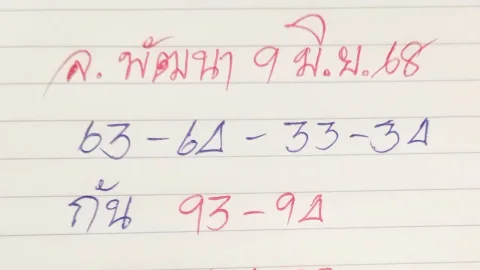 ล. พัฒนา 9 มิ.ย. 68
63-64-33-34
กัน 93-94